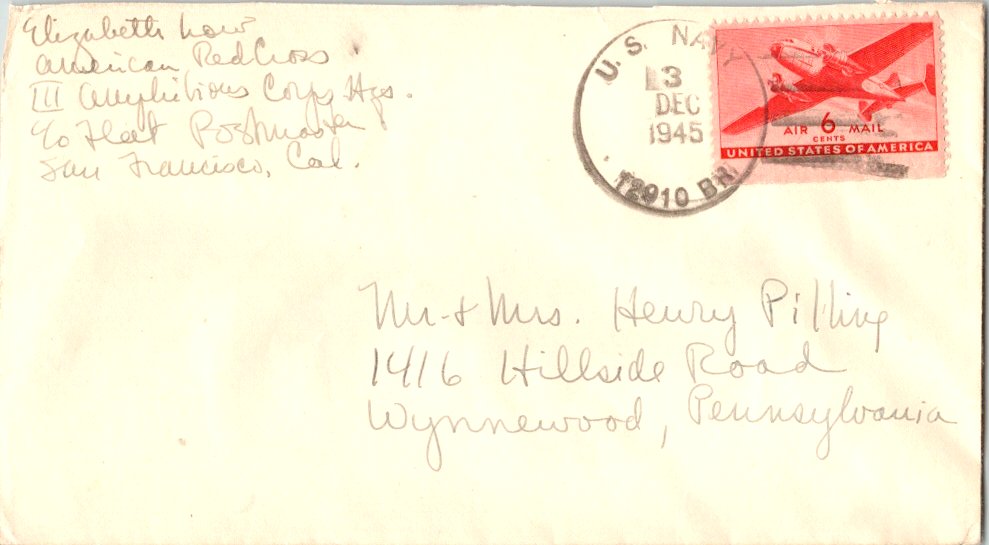 Elizabeth Low
American Red Cross
III Amphibious Corps Hqs.
c/o Fleet Postmaster
San Francisco, Cal.
U.S. NAVY
13
DEC
1945
12910 BR.
AIR 6 MAIL
CENTS
UNITED STATES OF AMERICA
Mr & Mrs. Henry Pilling
1416 Hillside Road
Wynnewood, Pennsylvania